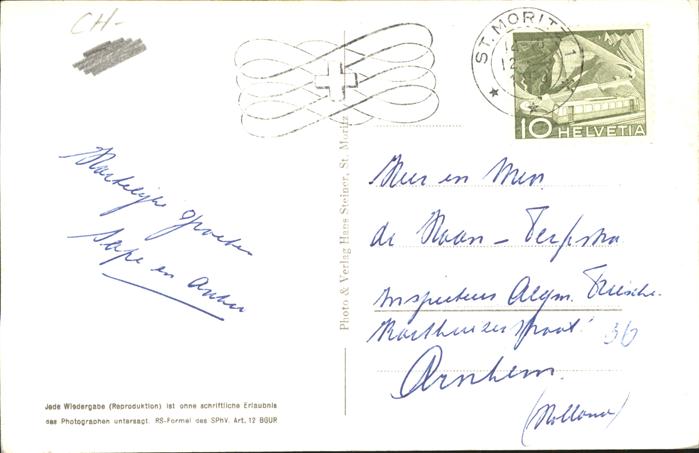 CH-
ST. MORITZ 1
12
10 HELVETIA
Photo & Verlag Hans Steiner, St. Moritz
Hartelijke groeten
Jape en Anton
Heer en Mevr.
de Haan - Terpstra
Inspecteur Algem.
Karthuizerstraat 36
Arnhem.
(Holland)
Jede Wiedergabe (Reproduktion) ist ohne schriftliche Erlaubnis
des Photographen untersagt. RS-Formel des SPhV. Art. 12 BGUR